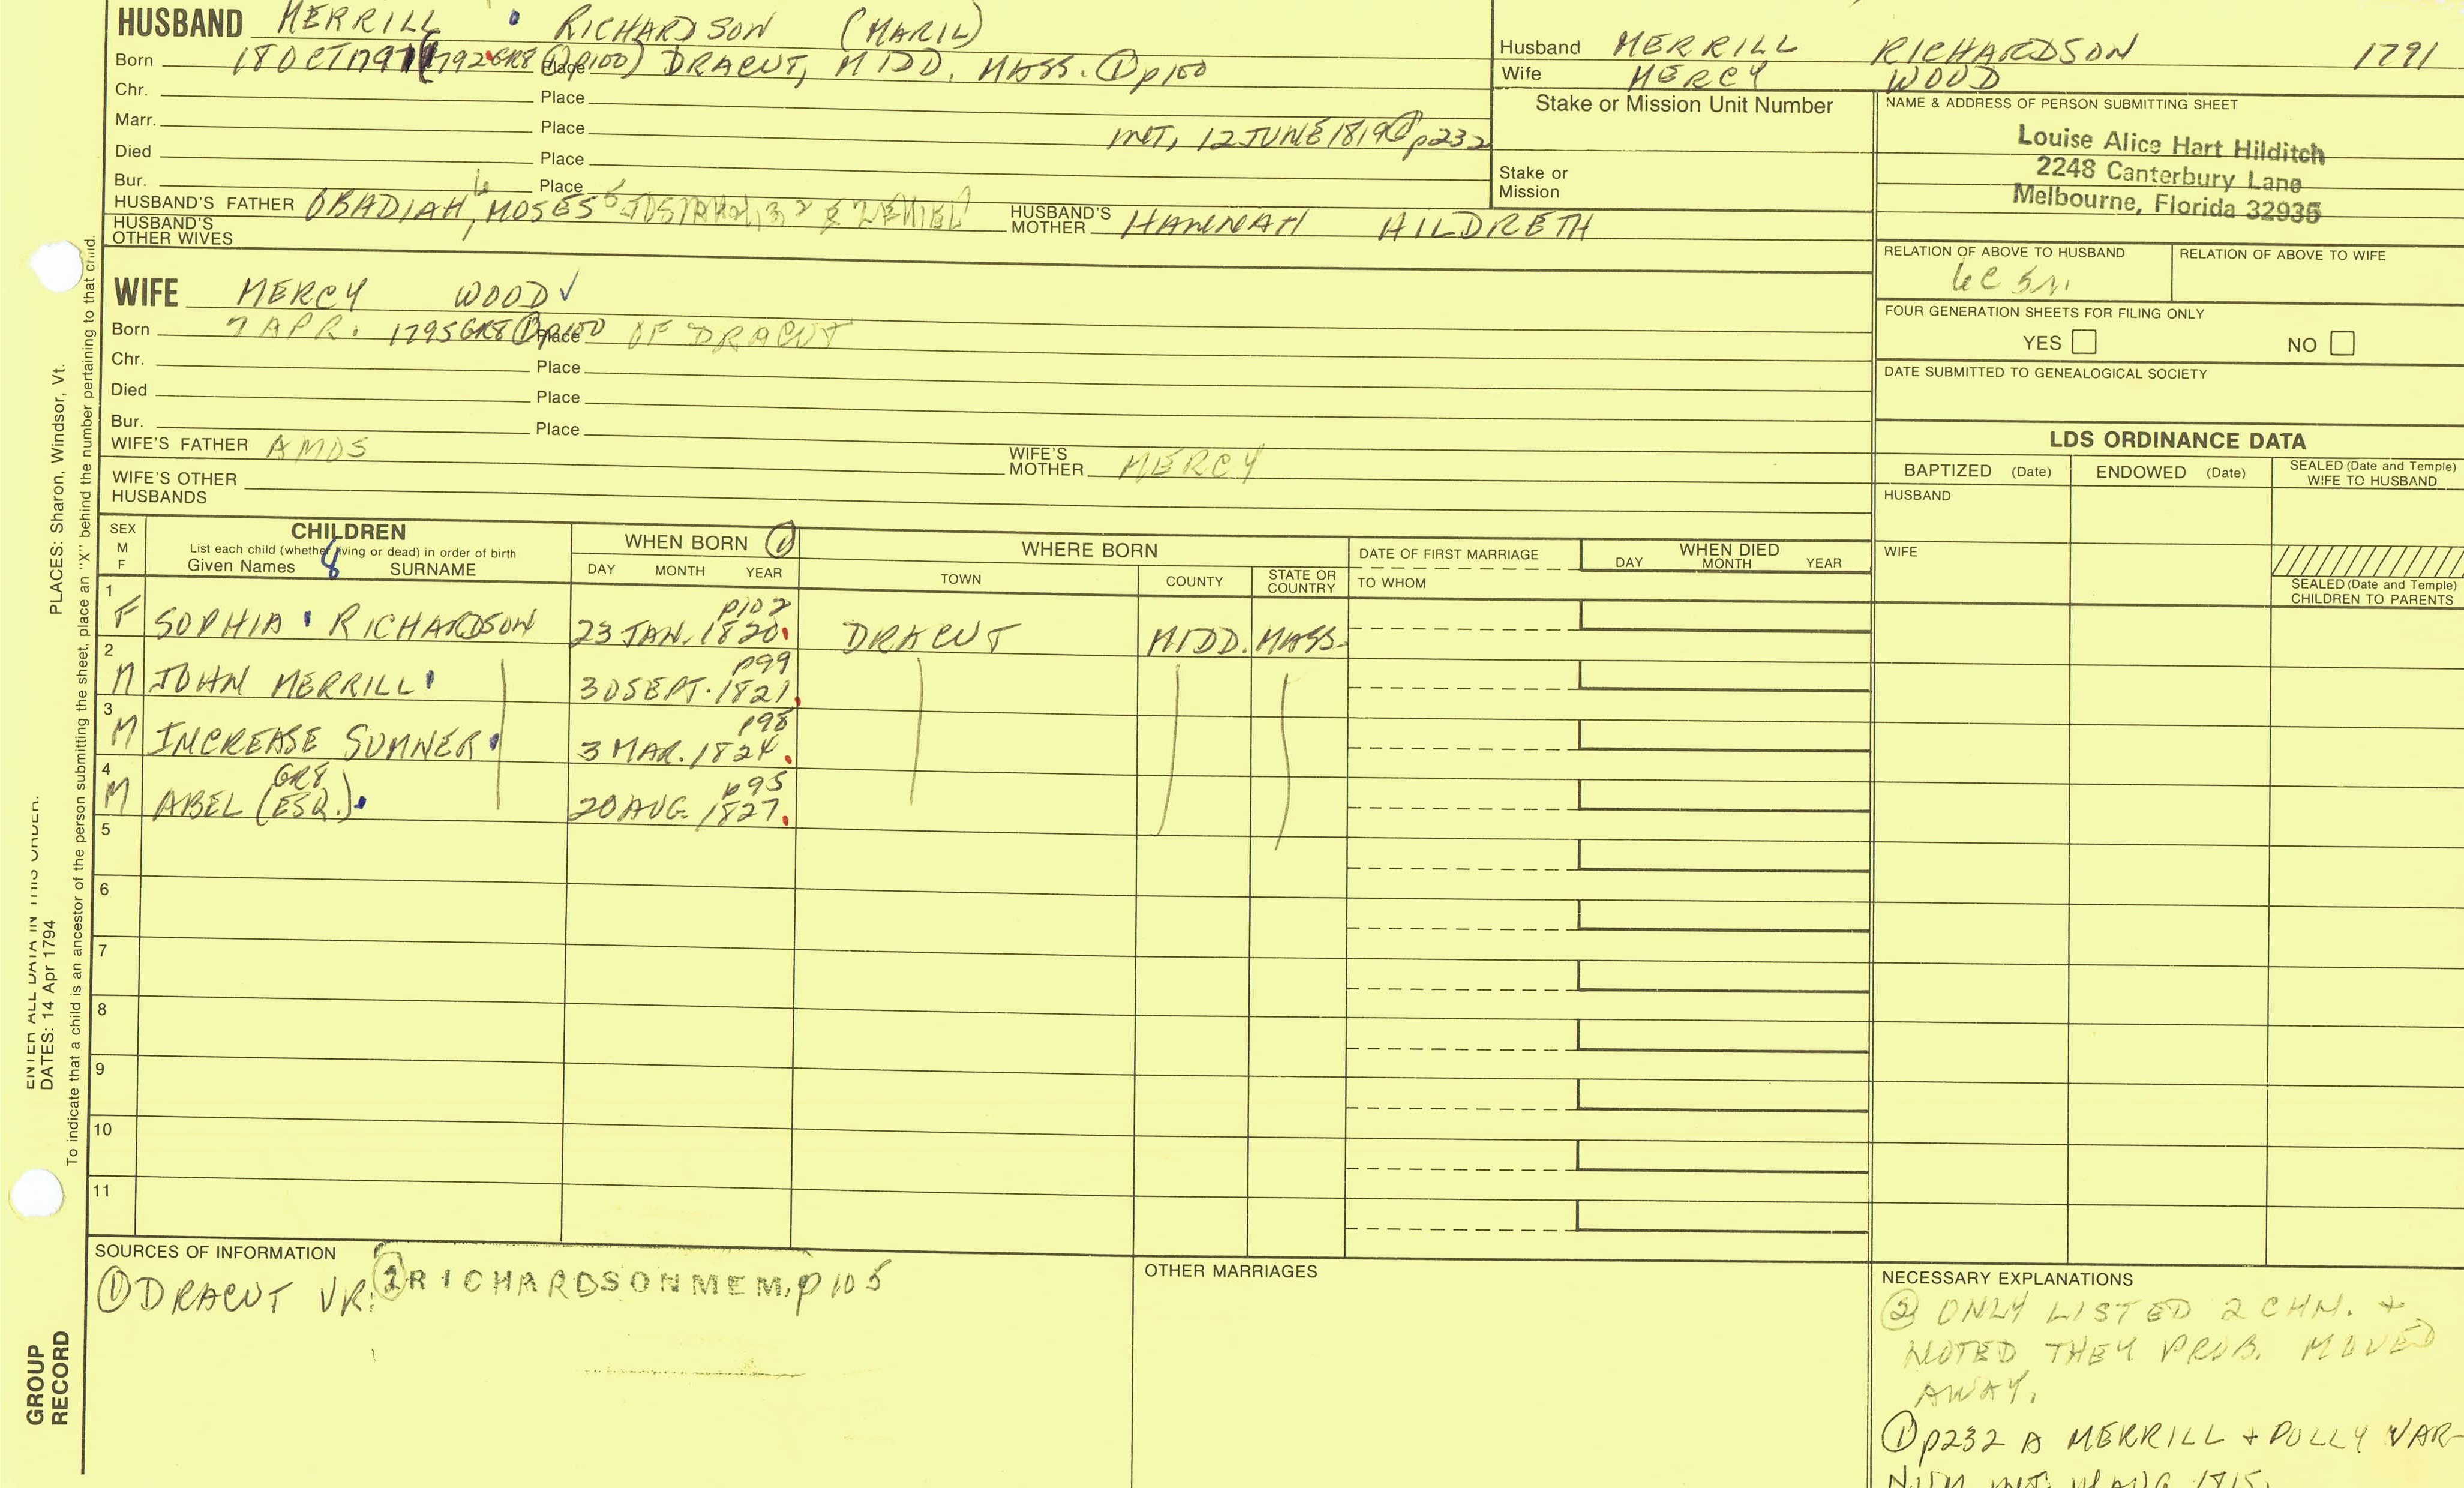 HUSBAND MERRILL RICHARDSON (MARIL)
Born 18 OCT 1791 (1792 GR8 ① p100) Place DRACUT, MIDD. MASS. ① p100
Chr. Place
Marr. Place MNT, 12 JUNE 1819 ① p232
Died Place
Bur. Place
HUSBAND'S FATHER OBADIAH 6, MOSES 5 JOSIAH 4,3 2 EZEKIEL HUSBAND'S MOTHER HANNAH HILDRETH
HUSBAND'S OTHER WIVES
Husband MERRILL RICHARDSON 1791
Wife MERCY WOOD
Stake or Mission Unit Number
Stake or Mission
NAME & ADDRESS OF PERSON SUBMITTING SHEET
Louise Alice Hart Hilditch
2248 Canterbury Lane
Melbourne, Florida 32935
RELATION OF ABOVE TO HUSBAND RELATION OF ABOVE TO WIFE
6C
FOUR GENERATION SHEETS FOR FILING ONLY
YES NO
DATE SUBMITTED TO GENEALOGICAL SOCIETY
WIFE MERCY WOOD ✓
Born 7 APR. 1795 GR8 ① p100 Place OF DRACUT
Chr. Place
Died Place
Bur. Place
WIFE'S FATHER AMOS WIFE'S MOTHER MERCY
WIFE'S OTHER HUSBANDS
LDS ORDINANCE DATA
BAPTIZED (Date) ENDOWED (Date) SEALED (Date and Temple) WIFE TO HUSBAND
HUSBAND
WIFE
SEALED (Date and Temple) CHILDREN TO PARENTS
SEX M F
CHILDREN
List each child (whether living or dead) in order of birth
Given Names 8 SURNAME
WHEN BORN ①
DAY MONTH YEAR
WHERE BORN
TOWN COUNTY STATE OR COUNTRY
DATE OF FIRST MARRIAGE
TO WHOM
WHEN DIED
DAY MONTH YEAR
1 F SOPHIA RICHARDSON p102 23 JAN. 1820 DRACUT MIDD. MASS.
2 M JOHN MERRILL p99 30 SEPT. 1821
3 M INCREASE SUMNER p98 3 MAR. 1824
4 M ABEL (ESQ.) GR8 p95 20 AUG. 1827
5
6
7
8
9
10
11
SOURCES OF INFORMATION
① DRACUT VR: ② RICHARDSON MEM, p105
OTHER MARRIAGES
NECESSARY EXPLANATIONS
② ONLY LISTED 2 CHN. +
NOTED THEY PROB. MOVED
AWAY.
① p232 A MERRILL + POLLY VAR-
AUG 1815.
PLACES: Sharon, Windsor, Vt.
ENTER ALL DATA IN THIS ORDER:
DATES: 14 Apr 1794
To indicate that a child is an ancestor of the person submitting the sheet, place an "X" behind the number pertaining to that child.
GROUP
RECORD